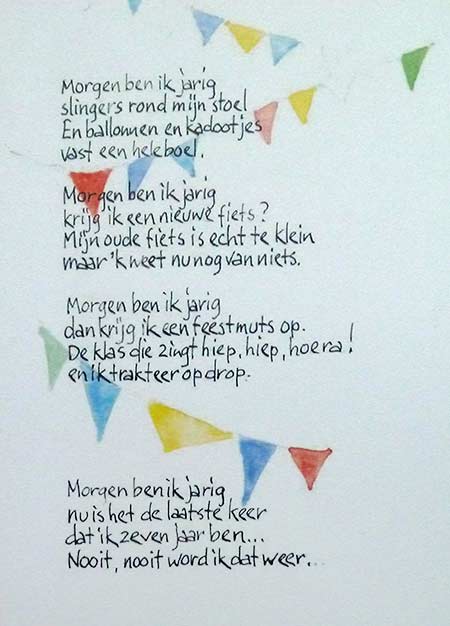 Morgen ben ik jarig
slingers rond mijn stoel
En ballonnen en kadootjes
vast een heleboel.
Morgen ben ik jarig
krijg ik een nieuwe fiets?
Mijn oude fiets is echt te klein
maar 'k weet nu nog van niets.
Morgen ben ik jarig
dan krijg ik een feestmuts op.
De klas die zingt hiep, hiep, hoera!
en ik trakteer op drop.
Morgen ben ik jarig
nu is het de laatste keer
dat ik zeven jaar ben...
Nooit, nooit word ik dat weer...